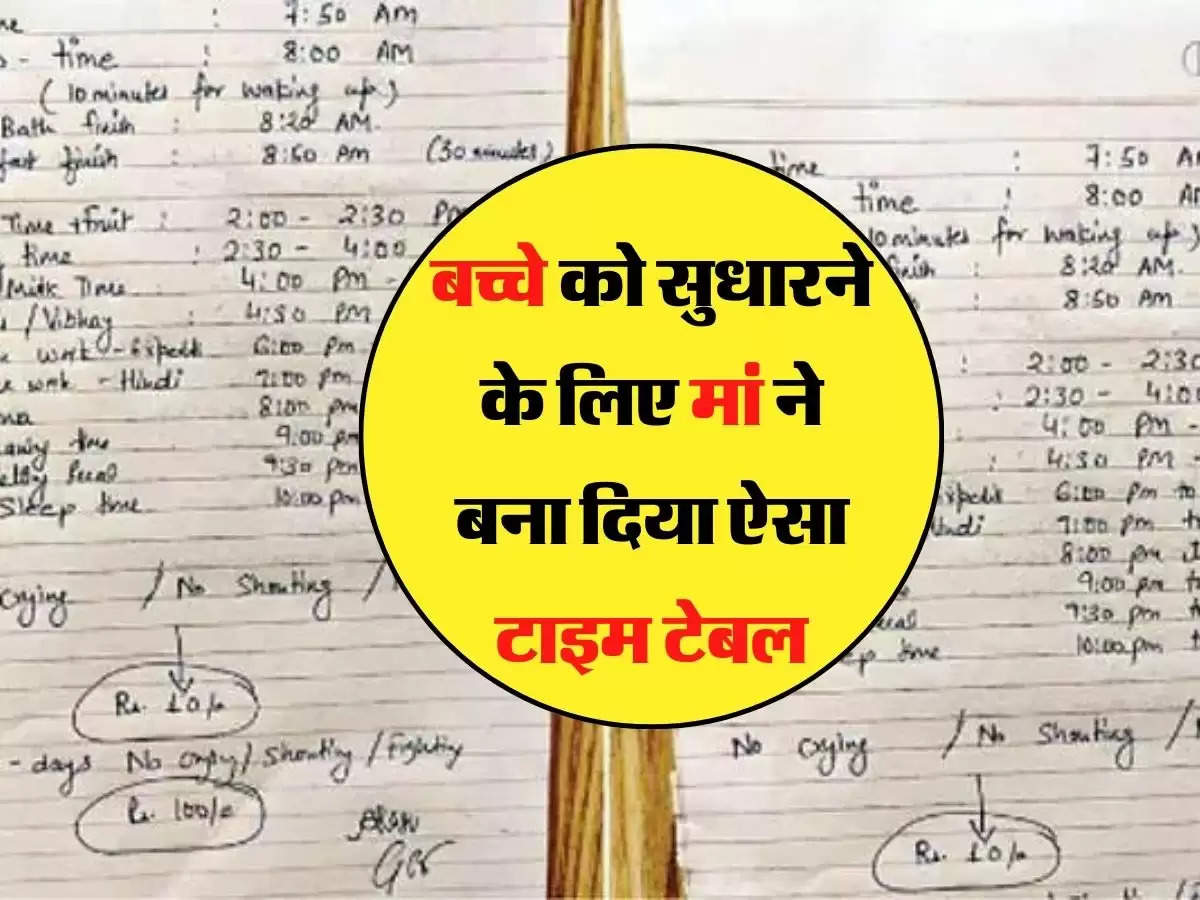 7:50 AM
time : 8:00 AM
(10 minutes for waking up)
Bath finish : 8:20 AM.
finish : 8:50 AM (30 minutes)
Time + fruit : 2:00 - 2:30
time : 2:30 - 4:00
Milk Time : 4:00 PM -
/Vibhav : 4:30 PM
work - 6:00 pm
work - Hindi 7:00 pm
8:00 pm
time 9:00 pm
9:30 pm
Sleep time 10:00 pm
Crying / No Shouting /
Rs. 10/-
- days No crying / Shouting / Fighting
Rs. 100/-
बच्चे को सुधारने
के लिए मां ने
बना दिया ऐसा
टाइम टेबल
time : 7:50
time : 8:00
10 minutes for waking up)
8:20 AM.
: 8:50 AM
: 2:00 - 2:30
: 2:30 - 4:00
: 4:00 PM -
: 4:30 PM -
6:00 pm to
7:00 pm to
8:00 pm
9:00 pm to
9:30 pm to
time 10:00 pm
No Crying / No Shouting /
Rs. 10/-